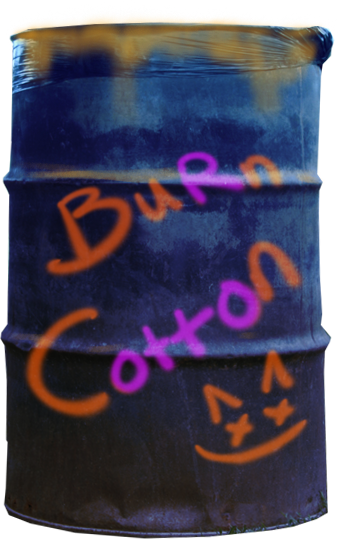 BuRn
Cotton